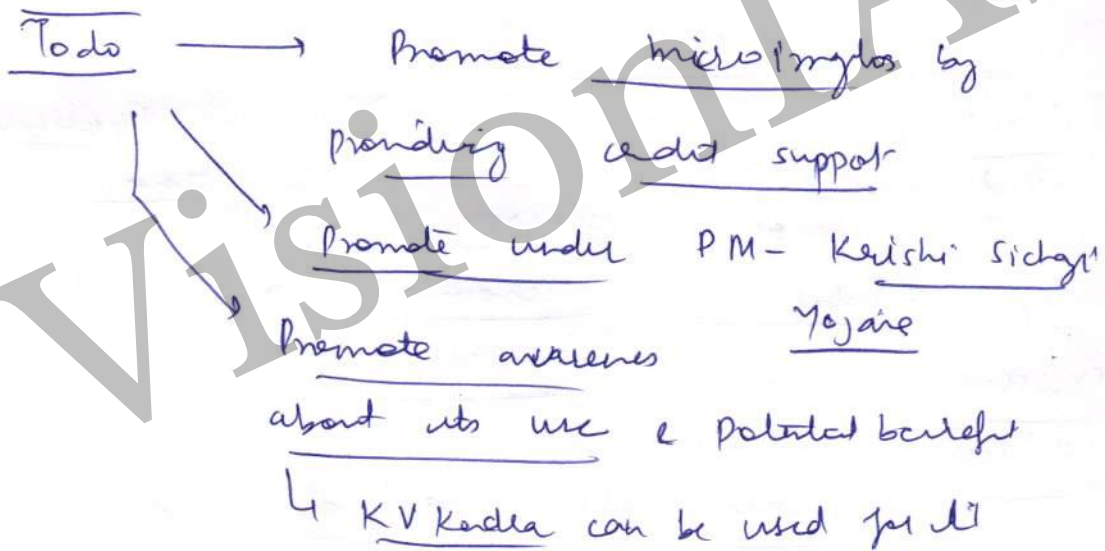 Todo → Promote microirrigation by
providing credit support
Promote under PM- Krishi Sichayi
Yojane
Promote awarenes
about its use & potential benefit
↳ KV Kendra can be used for it
VisionIA